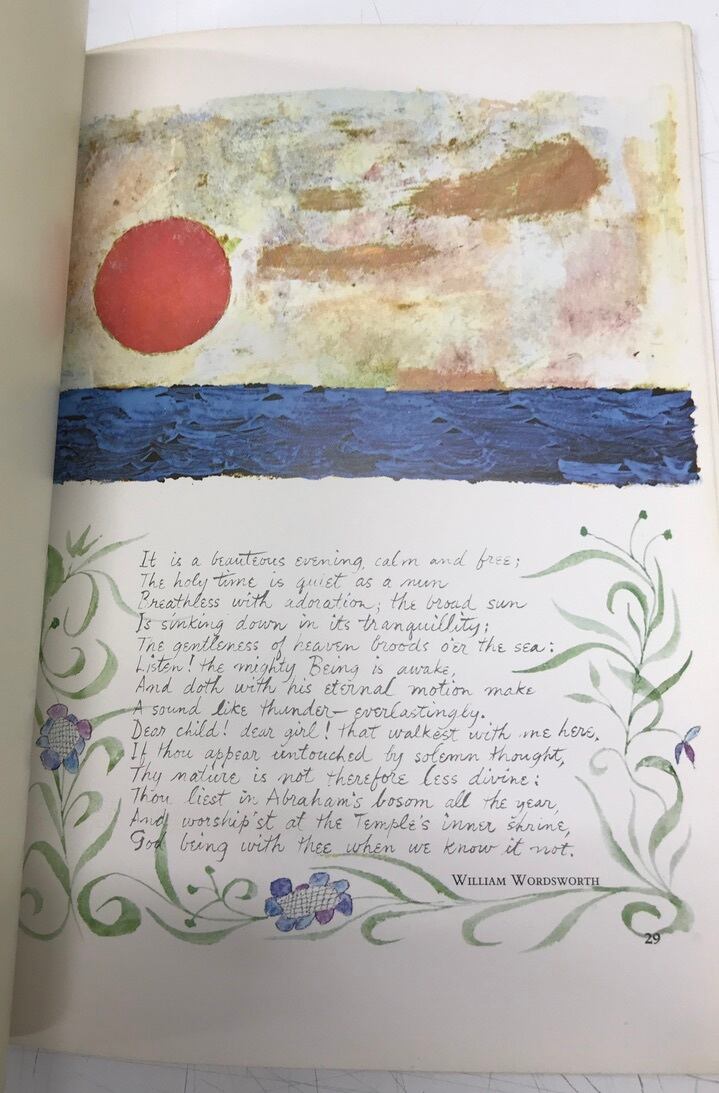 It is a beauteous evening, calm and free;
The holy time is quiet as a nun
Breathless with adoration; the broad sun
Is sinking down in its tranquillity;
The gentleness of heaven broods o'er the sea:
Listen! the mighty Being is awake,
And doth with his eternal motion make
A sound like thunder—everlastingly.
Dear child! dear girl! that walkest with me here,
If thou appear untouched by solemn thought,
Thy nature is not therefore less divine:
Thou liest in Abraham's bosom all the year,
And worship'st at the Temple's inner shrine,
God being with thee when we know it not.
WILLIAM WORDSWORTH
29